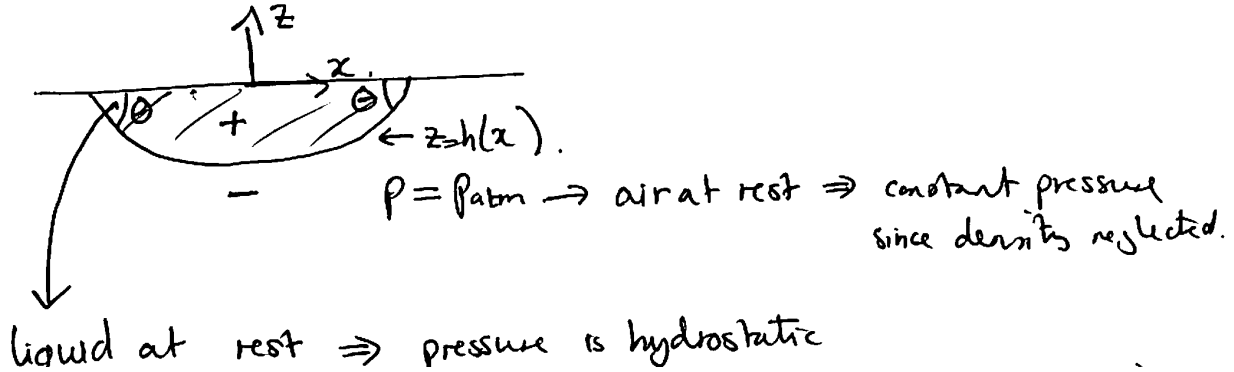 z
x.
θ + θ
← z=h(x).
−
P = Patm → air at rest ⇒ constant pressure
since density neglected.
liquid at rest ⇒ pressure is hydrostatic